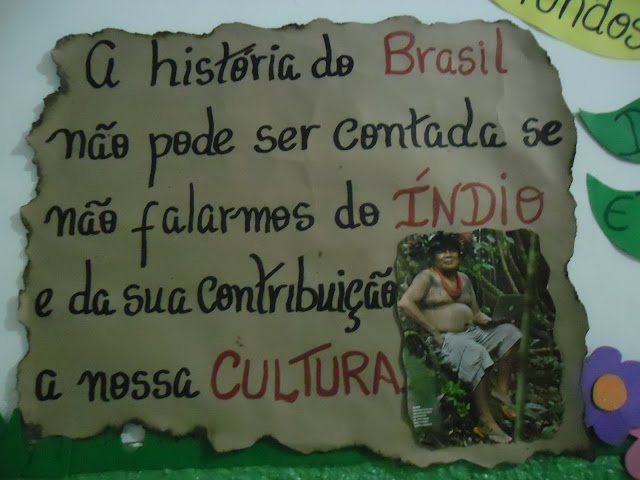 A história do Brasil
não pode ser contada se
não falarmos do ÍNDIO
e da sua contribuição
a nossa CULTURA